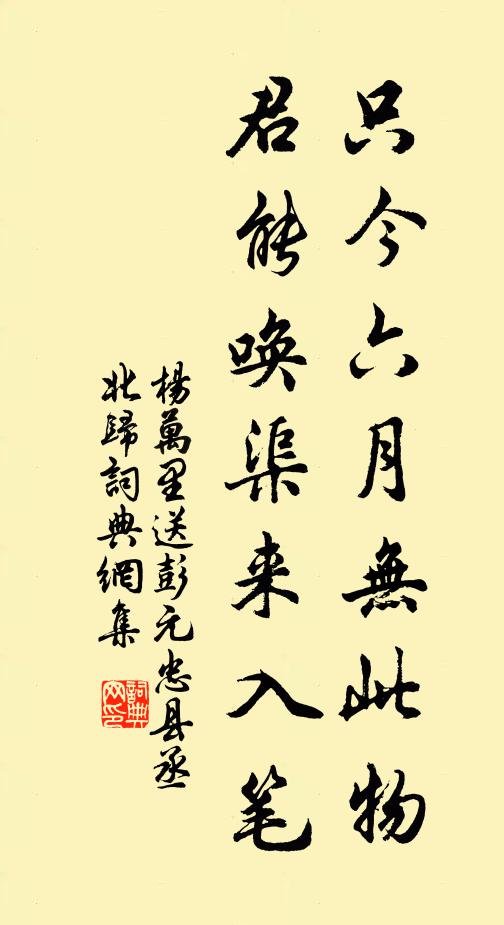 只今六月無此物
君能唤渠来入笔
楊萬里送彭元忠县丞
北歸詞典網集
詞典网印